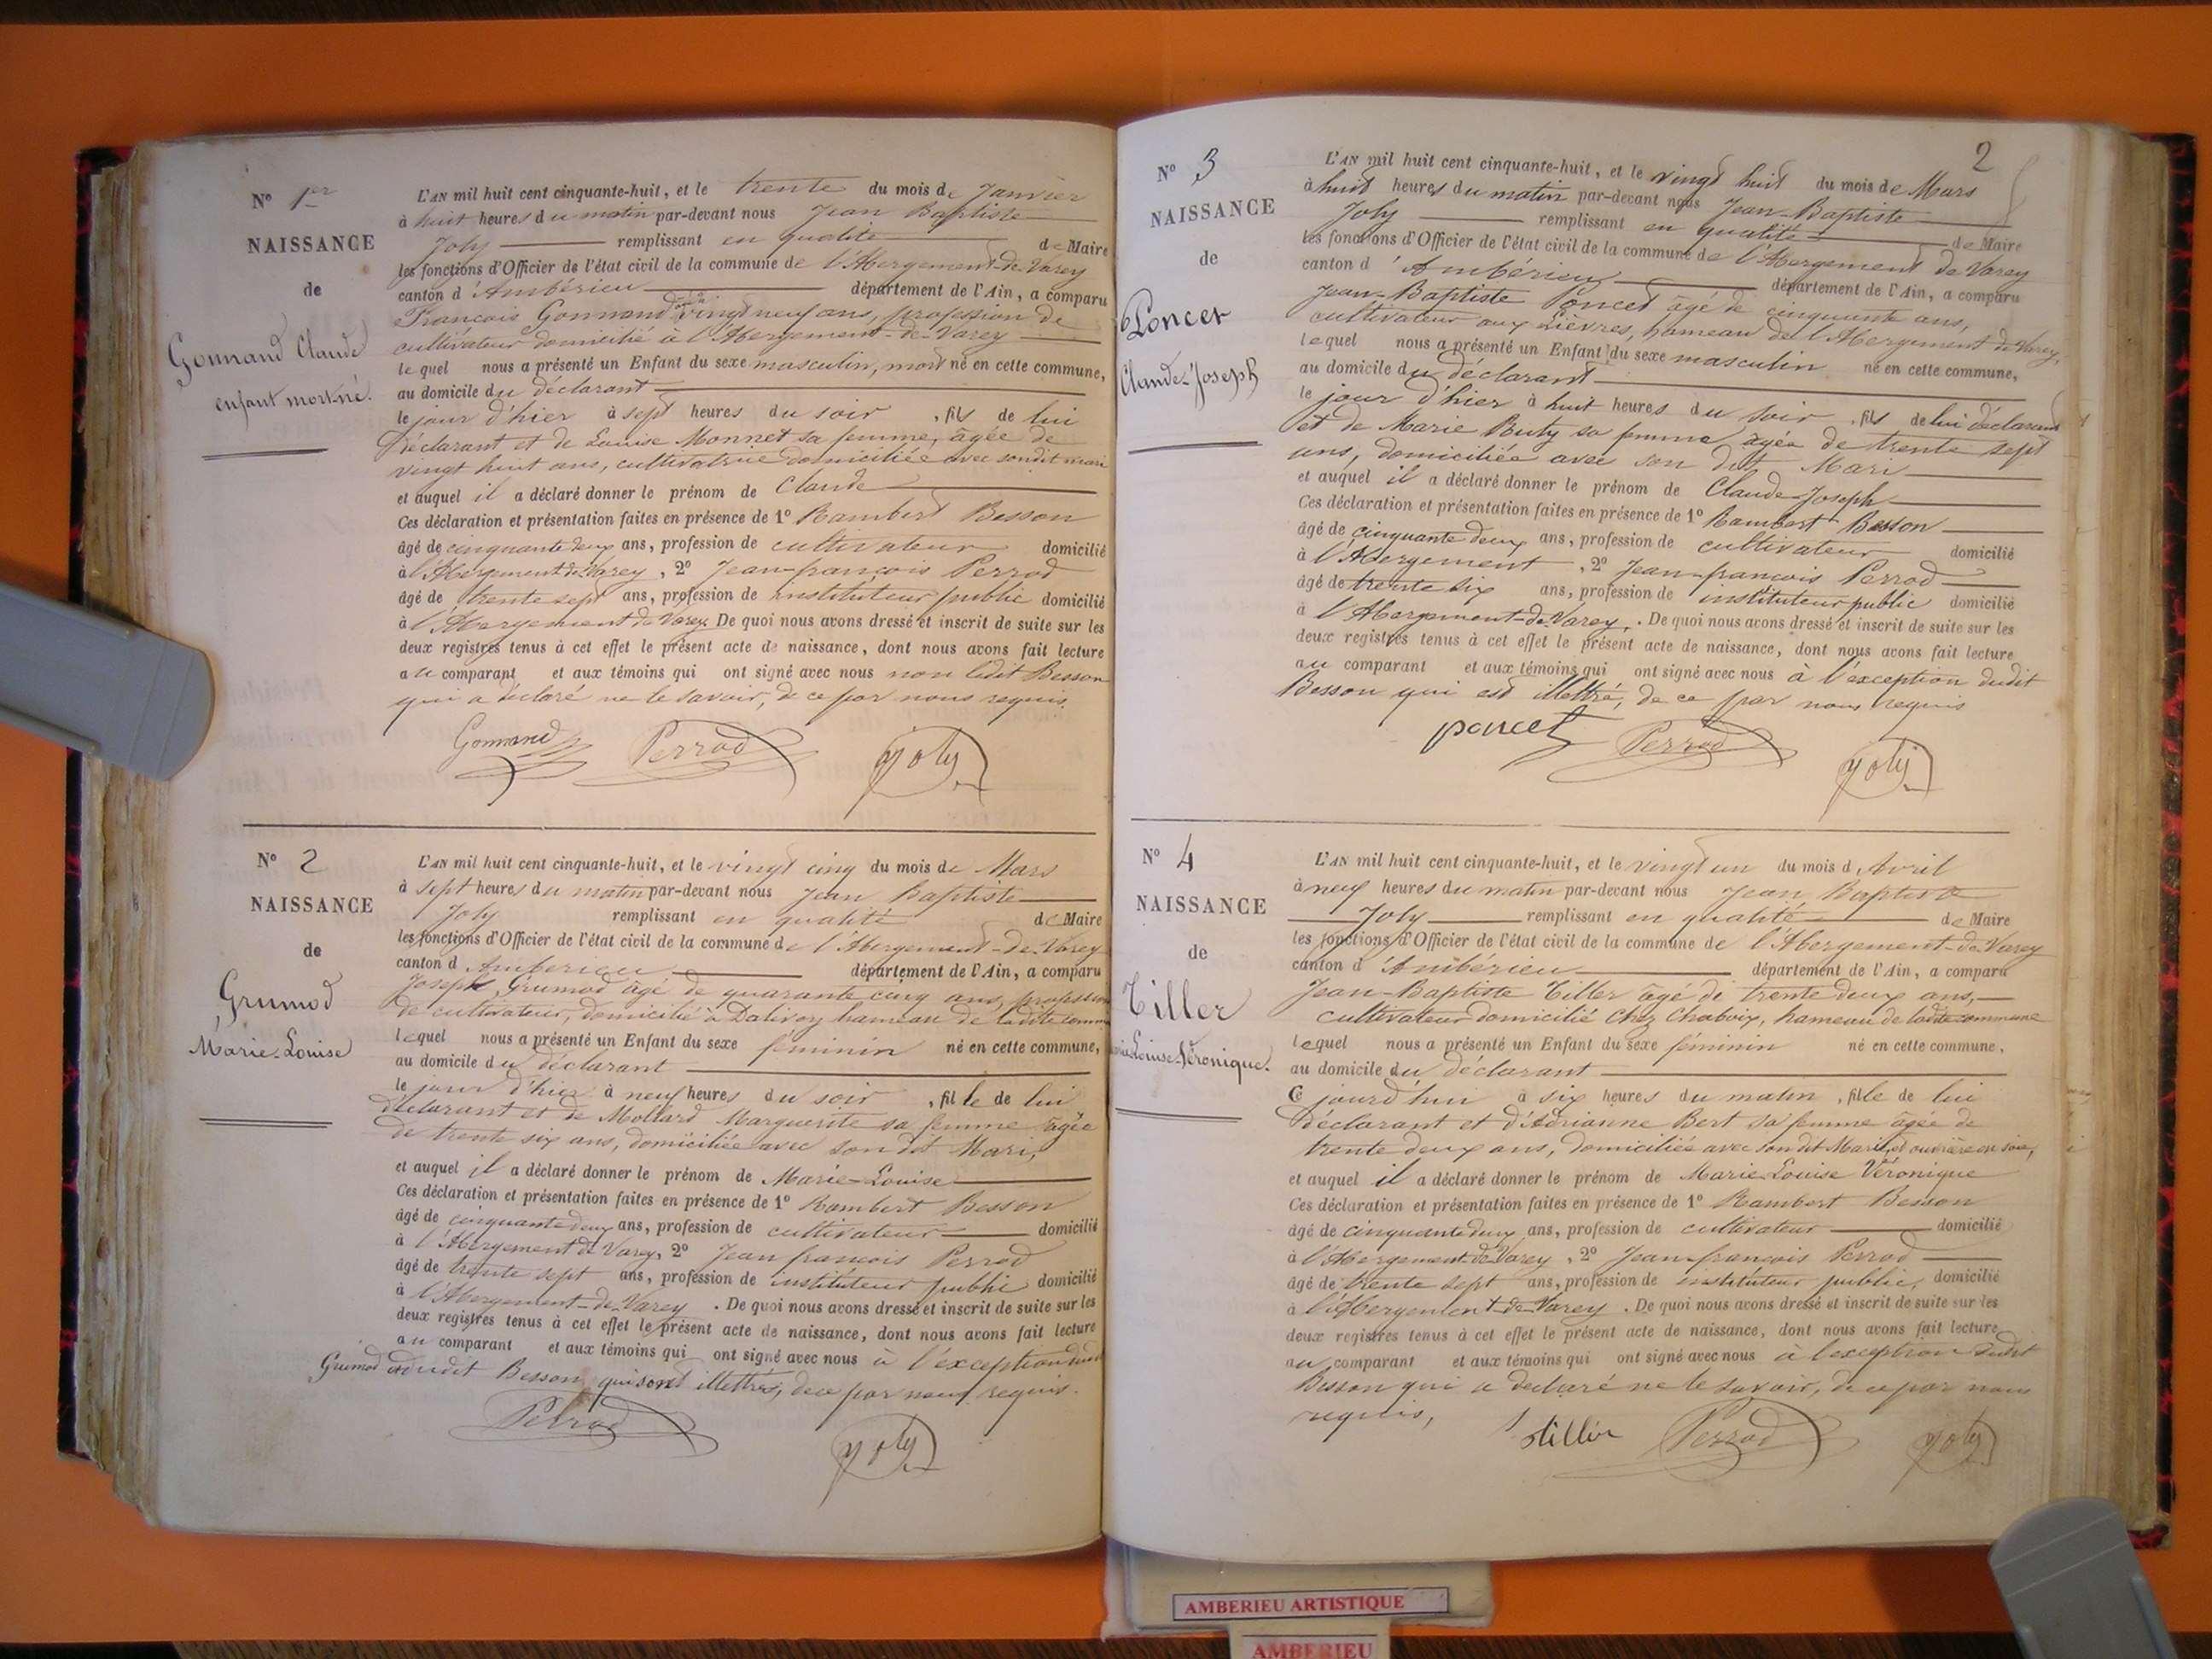 N° 1er
NAISSANCE
de
Gonnand Claude
enfant mort-né.
L'AN mil huit cent cinquante-huit, et le trente du mois de Janvier
à huit heures du matin par-devant nous Jean Baptiste
Joly remplissant en qualité de Maire
les fonctions d'Officier de l'état civil de la commune de l'Abergement-de-Varey
canton d'Ambérieu département de l'Ain, a comparu
François Gonnand vingt neuf ans, profession de
cultivateur domicilié à l'Abergement-de-Varey
lequel nous a présenté un Enfant du sexe masculin, mort né en cette commune,
au domicile du déclarant
le jour d'hier à sept heures du soir, fils de lui
Déclarant et de Louise Monnet sa femme, âgée de
vingt huit ans, cultivatrice domiciliée avec sondit mari
et auquel il a déclaré donner le prénom de Claude
Ces déclaration et présentation faites en présence de 1° Rambert Besson
âgé de cinquante deux ans, profession de cultivateur domicilié
à l'Abergement de Varey, 2° Jean-françois Perrod
âgé de trente sept ans, profession de instituteur public domicilié
à l'Abergement de Varey. De quoi nous avons dressé et inscrit de suite sur les
deux registres tenus à cet effet le présent acte de naissance, dont nous avons fait lecture
au comparant et aux témoins qui ont signé avec nous non ledit Besson
qui a déclaré ne le savoir, de ce par nous requis.
Gonnand Perrod Joly
N° 2
NAISSANCE
de
Grumod
Marie-Louise
L'AN mil huit cent cinquante-huit, et le vingt cinq du mois de Mars
à sept heures du matin par-devant nous Jean Baptiste
Joly remplissant en qualité de Maire
les fonctions d'Officier de l'état civil de la commune de l'Abergement-de-Varey
canton d Amberieu département de l'Ain, a comparu
Joseph Grumod âgé de quarante cinq ans, profession
de cultivateur, domicilié à Dalivoy hameau de ladite comm
lequel nous a présenté un Enfant du sexe féminin né en cette commune,
au domicile du déclarant
le jour d'hier à neuf heures du soir, fille de lui
déclarant et de Mollard Marguerite sa femme âgée
de trente six ans, domiciliée avec son dit Mari,
et auquel il a déclaré donner le prénom de Marie-Louise
Ces déclaration et présentation faites en présence de 1° Rambert Besson
âgé de cinquante deux ans, profession de cultivateur domicilié
à l'Abergement de Varey, 2° Jean françois Perrod
âgé de trente sept ans, profession de instituteur public domicilié
à l'Abergement-de-Varey. De quoi nous avons dressé et inscrit de suite sur les
deux registres tenus à cet effet le présent acte de naissance, dont nous avons fait lecture
au comparant et aux témoins qui ont signé avec nous à l'exception dudit
Grumod et dudit Besson qui sont illettrés, de ce par nous requis.
Perrod Joly
2
N° 3
NAISSANCE
de
Poncet
Claude-Joseph
L'AN mil huit cent cinquante-huit, et le vingt huit du mois de Mars
à huit heures du matin par-devant nous Jean-Baptiste
Joly remplissant en qualité de Maire
les fonctions d'Officier de l'état civil de la commune de l'Abergement de Varey
canton d'Ambérieu département de l'Ain, a comparu
Jean-Baptiste Poncet âgé de cinquante ans,
cultivateur aux Lièvres, hameau de l'Abergement de Varey,
lequel nous a présenté un Enfant du sexe masculin né en cette commune,
au domicile du déclarant
le jour d'hier à huit heures du soir, fils de lui déclarant
et de Marie Buty sa femme âgée de trente sept
ans, domiciliée avec son dit Mari
et auquel il a déclaré donner le prénom de Claude-Joseph
Ces déclaration et présentation faites en présence de 1° Rambert Besson
âgé de cinquante deux ans, profession de cultivateur domicilié
à l'Abergement, 2° Jean-françois Perrod
âgé de trente six ans, profession de instituteur public domicilié
à l'Abergement-de-Varey. De quoi nous avons dressé et inscrit de suite sur les
deux registres tenus à cet effet le présent acte de naissance, dont nous avons fait lecture
au comparant et aux témoins qui ont signé avec nous à l'exception dudit
Besson qui est illettré, de ce par nous requis
poncet Perrod Joly
N° 4
NAISSANCE
de
Tiller
Louise-Véronique.
L'AN mil huit cent cinquante-huit, et le vingt un du mois d'Avril
à neuf heures du matin par-devant nous Jean Baptiste
Joly remplissant en qualité de Maire
les fonctions d'Officier de l'état civil de la commune de l'Abergement-de-Varey
canton d'Ambérieu département de l'Ain, a comparu
Jean-Baptiste Tiller âgé de trente deux ans,
cultivateur domicilié Chez Chaboix, hameau de ladite commune
lequel nous a présenté un Enfant du sexe féminin né en cette commune,
au domicile du déclarant
Ce jourd'hui à six heures du matin, fille de lui
déclarant et d'Adrianne Bert sa femme âgée de
trente deux ans, domiciliée avec son dit Mari, et ouvrière en soie,
et auquel il a déclaré donner le prénom de Marie Louise Véronique
Ces déclaration et présentation faites en présence de 1° Rambert Besson
âgé de cinquante deux ans, profession de cultivateur domicilié
à l'Abergement-de-Varey, 2° Jean-françois Perrod
âgé de trente sept ans, profession de instituteur public, domicilié
à l'Abergement-de-Varey. De quoi nous avons dressé et inscrit de suite sur les
deux registres tenus à cet effet le présent acte de naissance, dont nous avons fait lecture
au comparant et aux témoins qui ont signé avec nous à l'exception dudit
Besson qui a déclaré ne le savoir, de ce par nous
requis,
Perrod Joly
AMBERIEU ARTISTIQUE
AMBERIEU